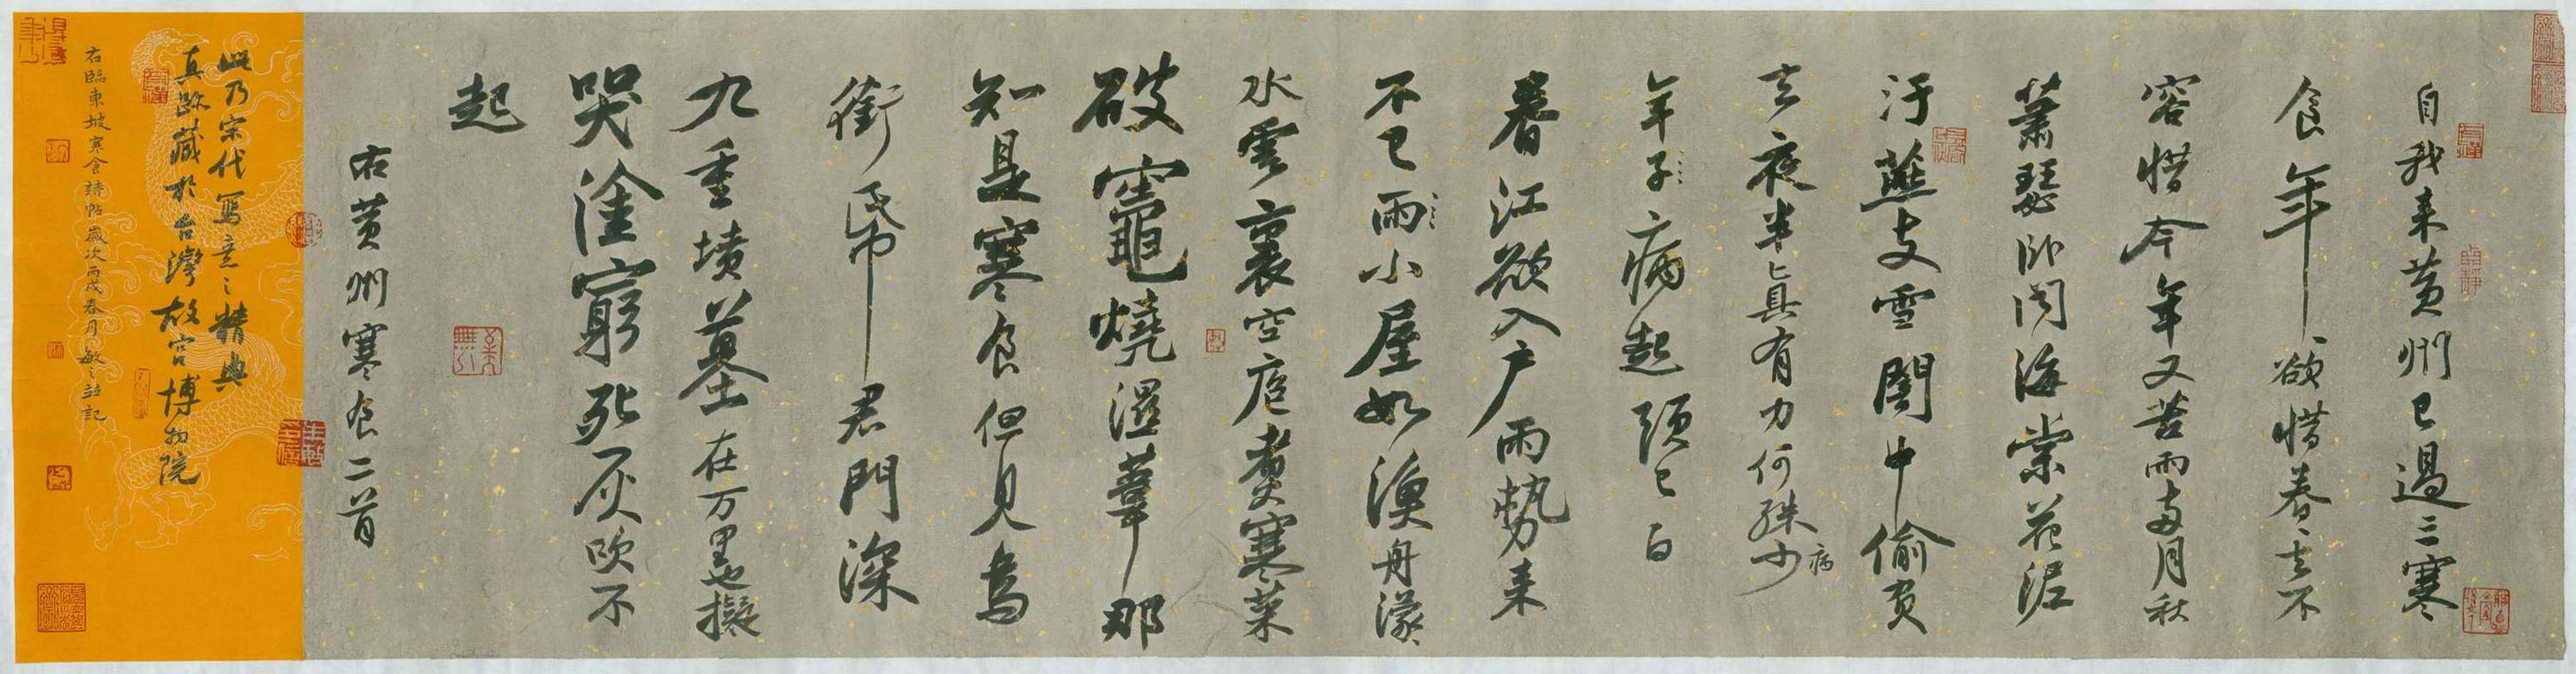 自我来黄州已過三寒
食年〻欲惜春〻去不
容惜今年又苦雨兩月秋
蕭瑟卧聞海棠花泥
汙燕支雪闇中偷負
去夜半真有力何殊少
病
年子〻病起頭已白
春江欲入户雨勢来
不已雨〻小屋如漁舟濛〻
水雲裏空庖煑寒菜
破竈燒濕葦那
知是寒食但見烏
銜帋君門深
九重墳墓在万里也擬
哭塗窮死灰吹不
起
右黄州寒食二首
此乃宋代寫意之精典
真跡藏於台灣故宮博物院
右臨東坡寒食詩帖歲次丙戌春月敏之並記